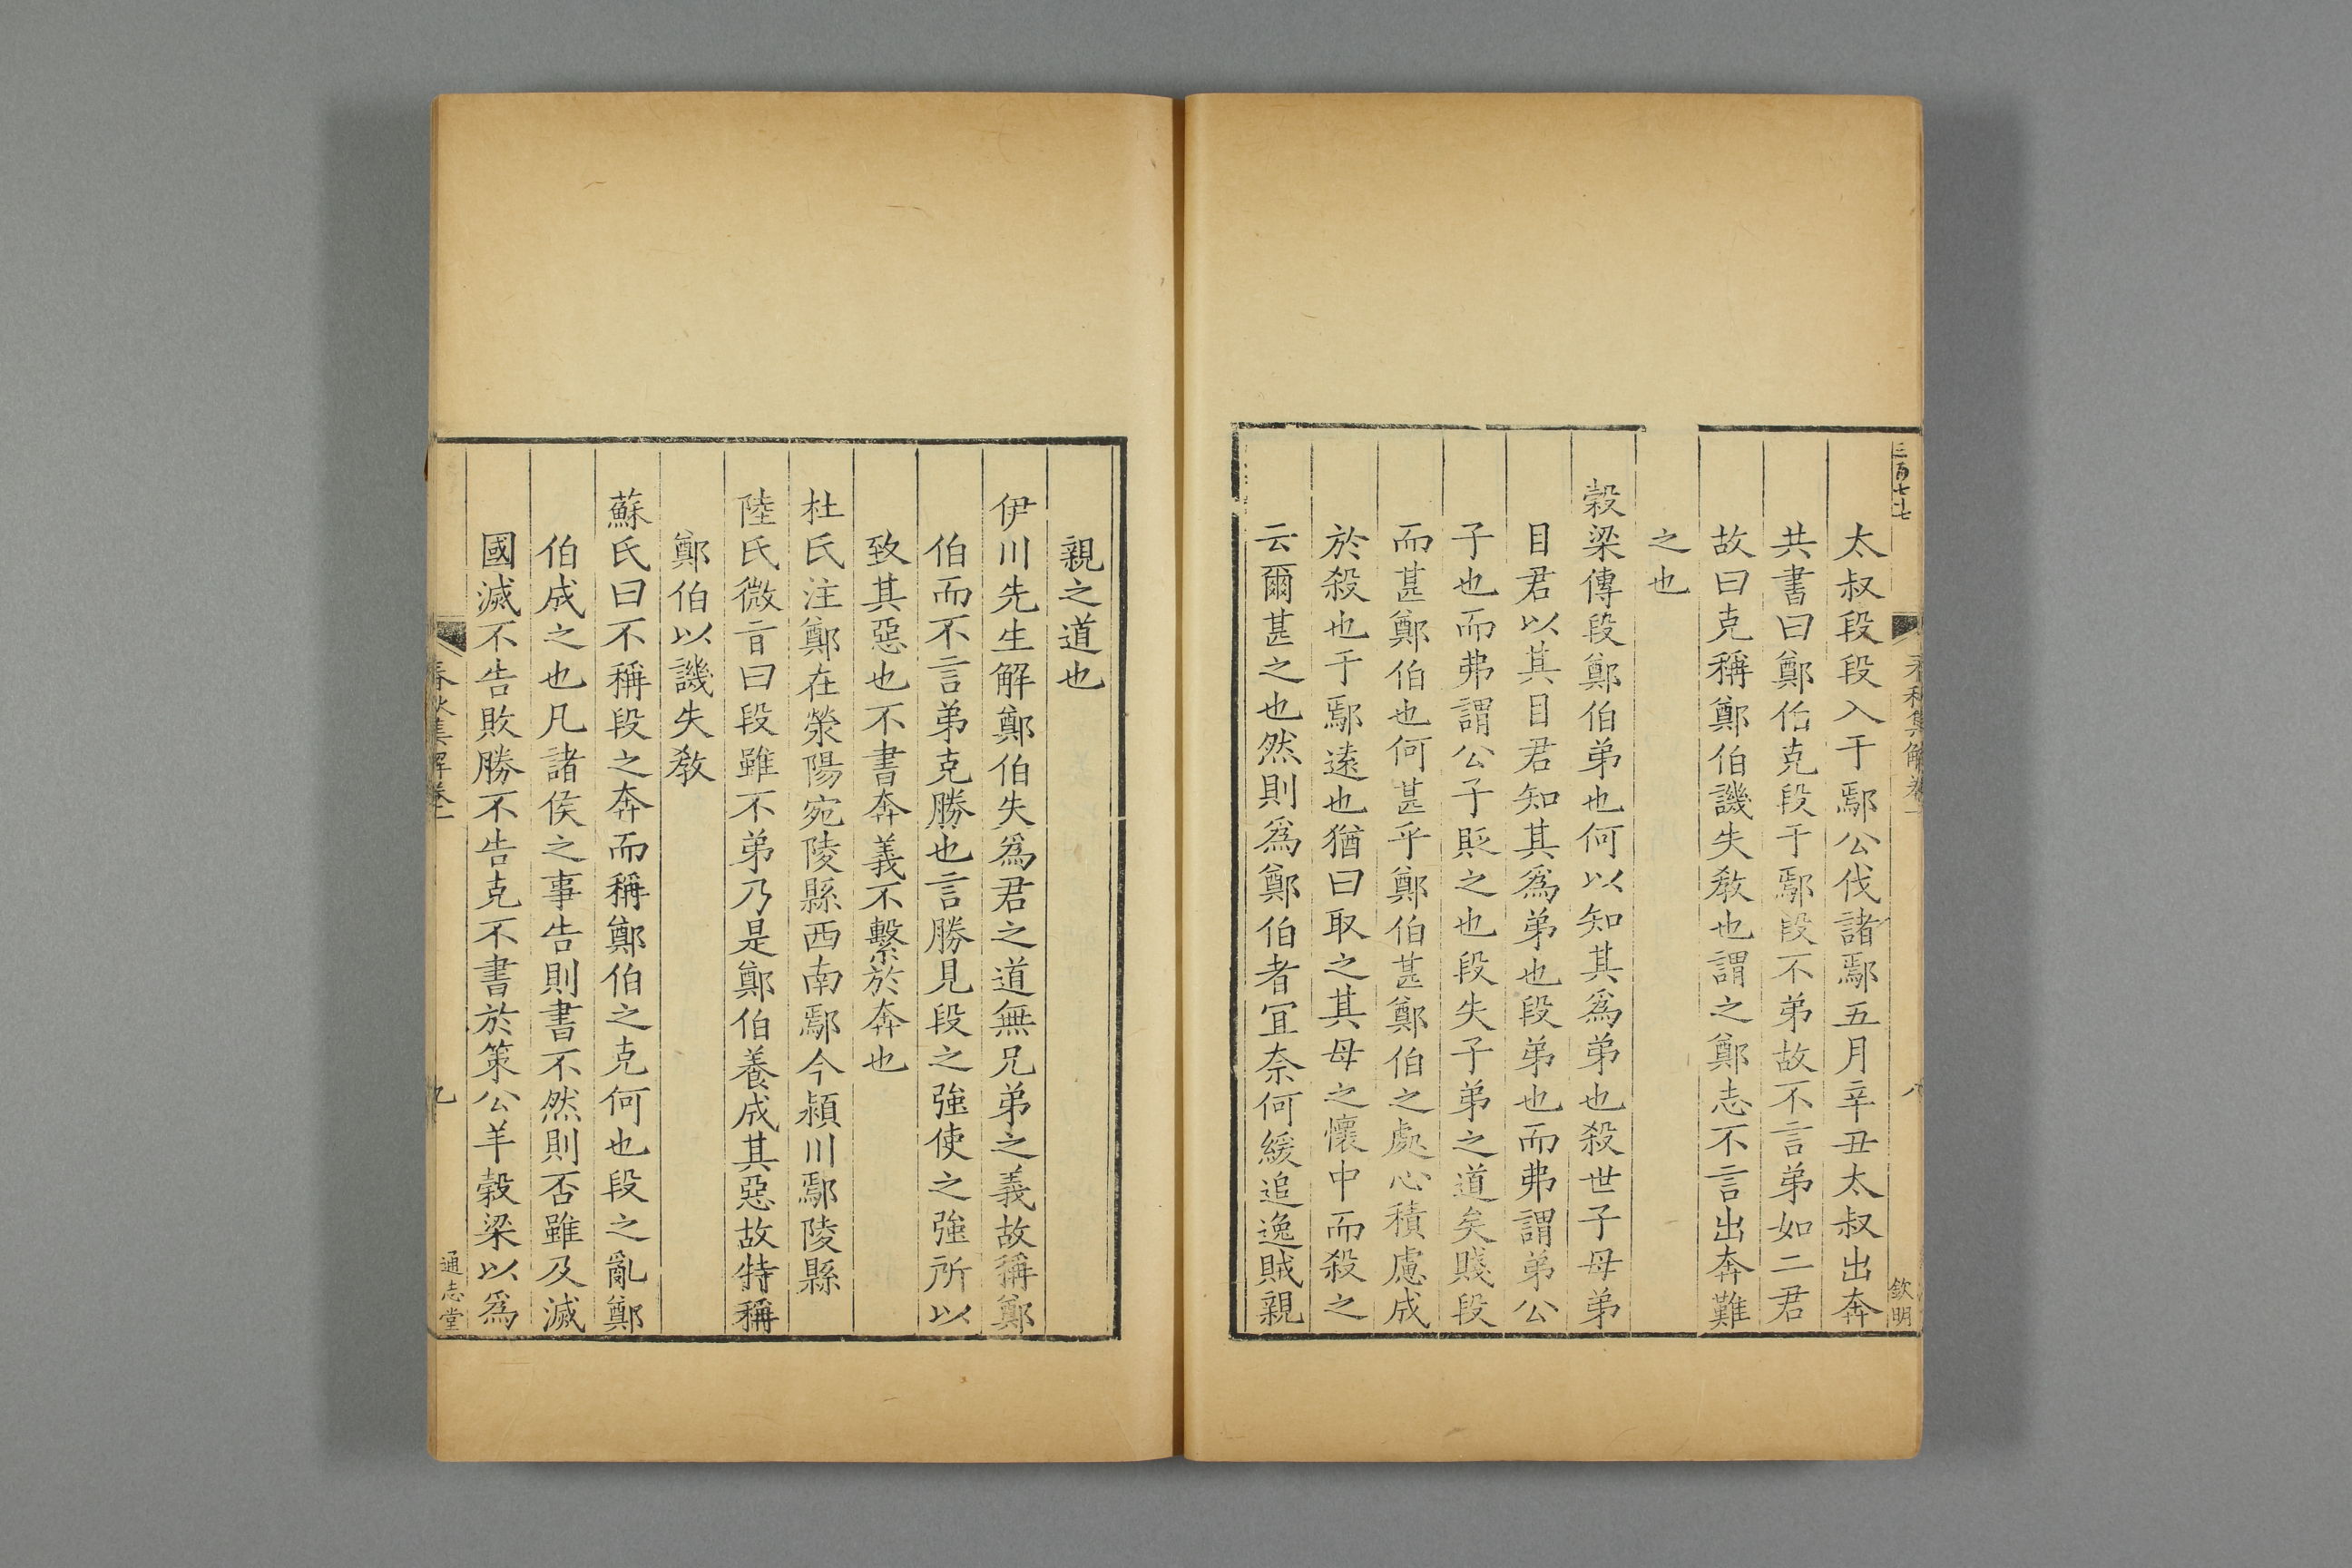 三百七七
春秋集解卷一
八
欽明
太叔段段入于鄢公伐諸鄢五月辛丑太叔出奔
共書曰鄭伯克段于鄢段不弟故不言弟如二君
故曰克稱鄭伯譏失敎也謂之鄭志不言出奔難
之也
穀梁傳段鄭伯弟也何以知其爲弟也殺世子母弟
目君以其目君知其爲弟也段弟也而弗謂弟公
子也而弗謂公子貶之也段失子弟之道矣賤段
而甚鄭伯也何甚乎鄭伯甚鄭伯之處心積慮成
於殺也于鄢遠也猶曰取之其母之懷中而殺之
云爾甚之也然則爲鄭伯者宜奈何緩追逸賊親
親之道也
伊川先生解鄭伯失爲君之道無兄弟之義故稱鄭
伯而不言弟克勝也言勝見段之強使之強所以
致其惡也不書奔義不繫於奔也
杜氏注鄭在滎陽宛陵縣西南鄢今潁川鄢陵縣
陸氏微㫖曰段雖不弟乃是鄭伯養成其惡故特稱
鄭伯以譏失敎
蘇氏曰不稱段之奔而稱鄭伯之克何也段之亂鄭
伯成之也凡諸侯之事告則書不然則否雖及滅
國滅不告敗勝不告克不書於策公羊穀梁以爲
春秋集解卷一
九
通志堂